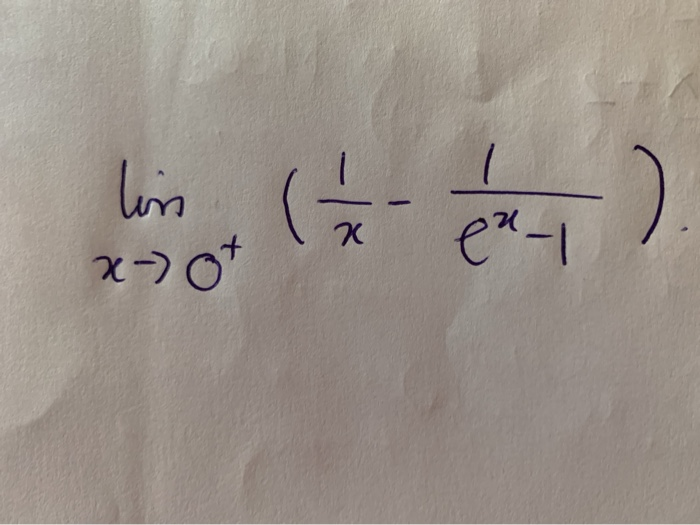 lim x→0⁺ (1/x - 1/(eˣ-1)).